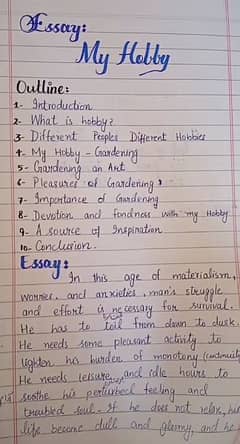 Essay:
My Hobby
Outline:
1- Introduction
2- What is hobby?
3- Different Peoples Different Hobbies
4- My Hobby - Gardening
5- Gardening an Art
6- Pleasures of Gardening
7- Importance of Gardening
8- Devotion and fondness with my Hobby
9- A source of Inspiration
10- Conclusion.
Essay:
In this age of materialism,
worries, and anxieties, man's struggle
and effort is necessary for survival.
He has to toil from dawn to dusk.
He needs some pleasant activity to
lighten his burden of monotony (continuity
He needs leisure and idle hours to
soothe his perturbed feeling and
troubled soul. If he does not relax, his
life become dull and gloomy, and he